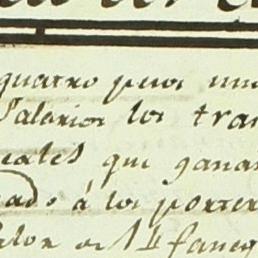 quatro pesos
Salarios los tra
reales que ganan
ado á los porter
de 14 faneg